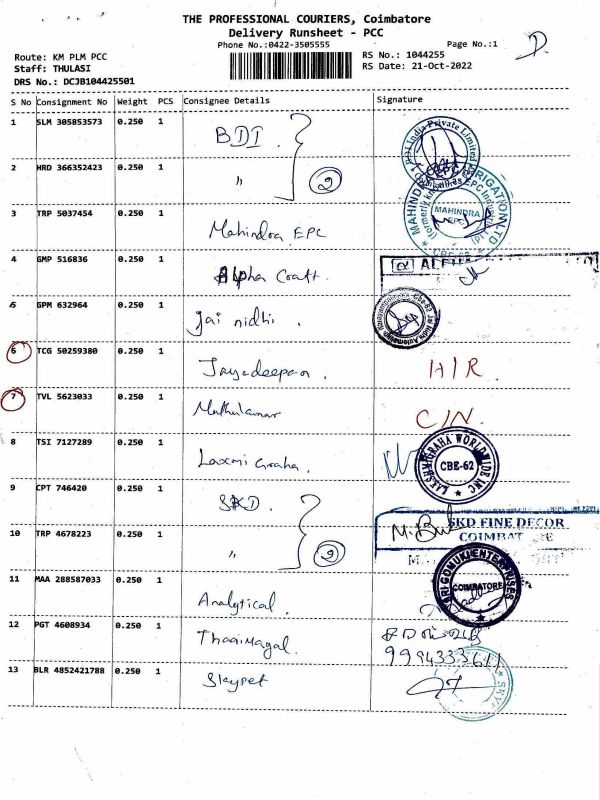 THE PROFESSIONAL COURIERS, Coimbatore
Delivery Runsheet - PCC
Phone No.:0422-3505555
Page No.:1
Route: KM PLM PCC
Staff: THULASI
DRS No.: DCJB104425501
RS No.: 1044255
RS Date: 21-Oct-2022
S No Consignment No Weight PCS Consignee Details Signature
1 SLM 305853573 0.250 1 BDI
2 HRD 366352423 0.250 1 " 2
3 TRP 5037454 0.250 1 Mahindra EPC
MAHINDRA EPC
4 GMP 516836 0.250 1 Alpha Craft.
5 GPM 632964 0.250 1 Jai nidhi.
6 TCG 50259380 0.250 1 Jayadeepan. H/R
7 TVL 5623033 0.250 1 Muthukumar C/N
8 TSI 7127289 0.250 1 Laxmi Graha.
LAKSHMIGRAHA WORLDWIDE INC
CBE-62
9 CPT 746420 0.250 1 SKD.
SKD FINE DECOR
10 TRP 4678223 0.250 1 " 2
11 MAA 288587033 0.250 1 Analytical.
SRI GOMUKI ENTERPRISES
COIMBATORE
12 PGT 4608934 0.250 1 Thaaimagal.
9994333611
13 BLR 4852421788 0.250 1 Skypet